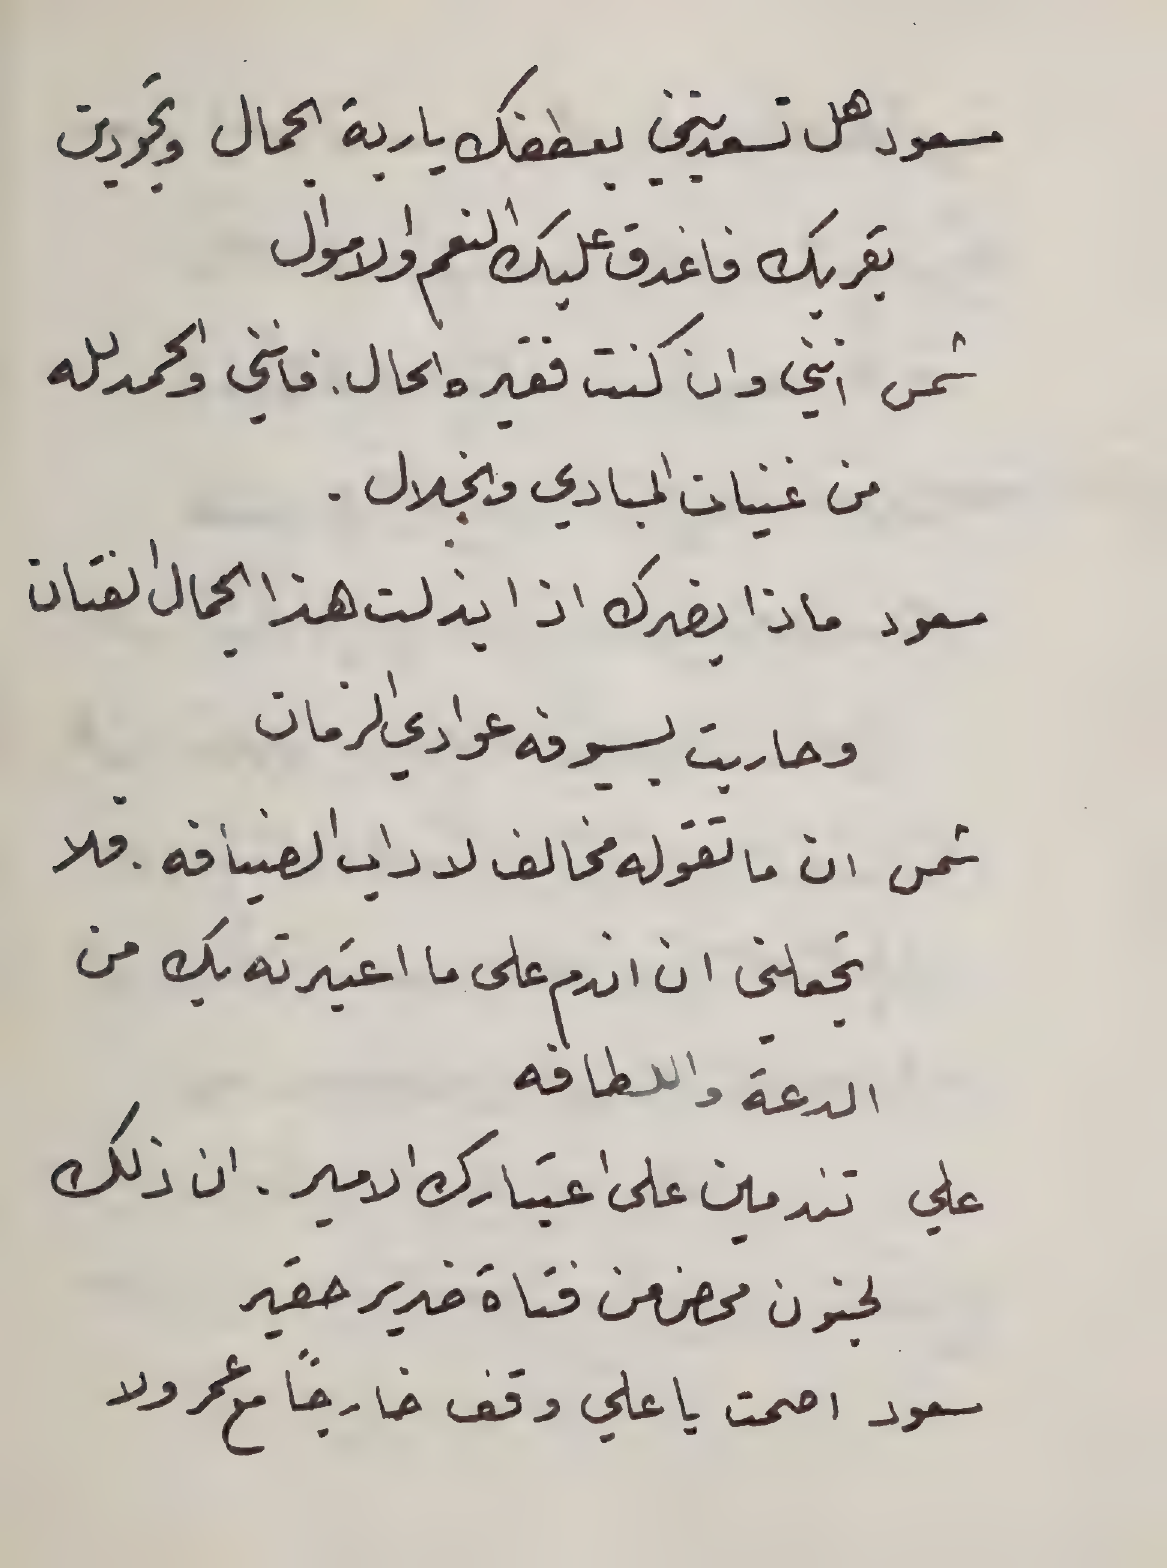 مسعود هل تسعدينني بعطفك يا ربة الجمال وتجودين
بقربك فاغدق عليك النعم والاموال
شمس انني وان كنت فقيره الحال. فانني والحمد لله
من غنيات المبادي والجلال .
مسعود ماذا يضرك اذا بذلت هذا الجمال الفتان
وحاربت بسيوفه عوادي الزمان
شمس ان ما تقوله مخالف لاداب الضيافه . فلا
تجعلني ان اندم على ما اعتبرته بك من
الدعة واللطافه
علي تندمين على اعتبارك الامير . ان ذلك
لجنون محض من فتاة فدير حقير
سعود اصمت يا علي وقف خارجًا مع عمر ولا